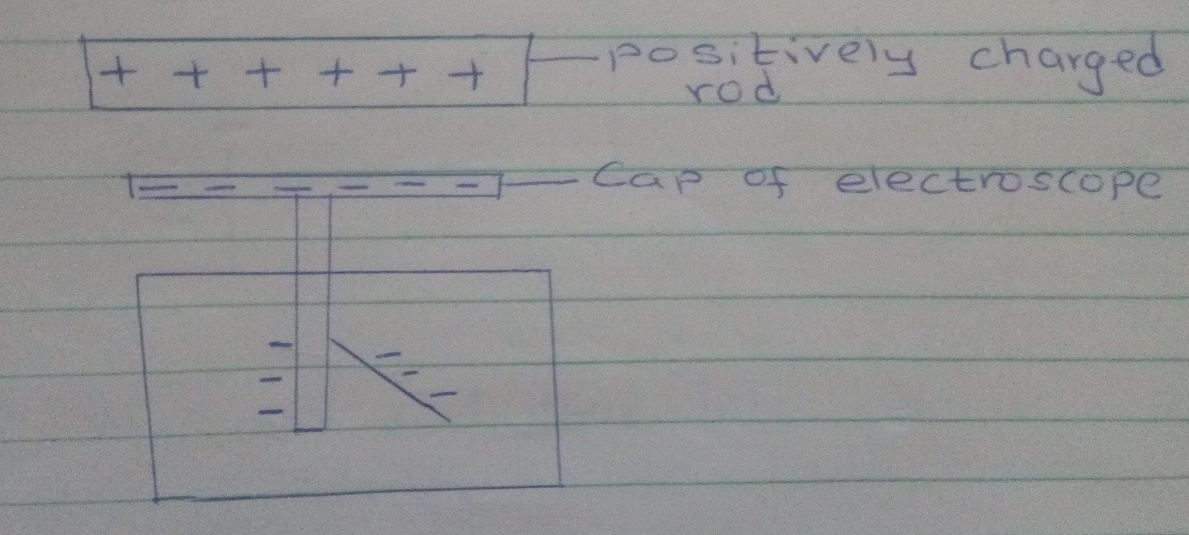 + + + + + + positively charged
rod
- - - - - - Cap of electroscope
- -
- -
- -